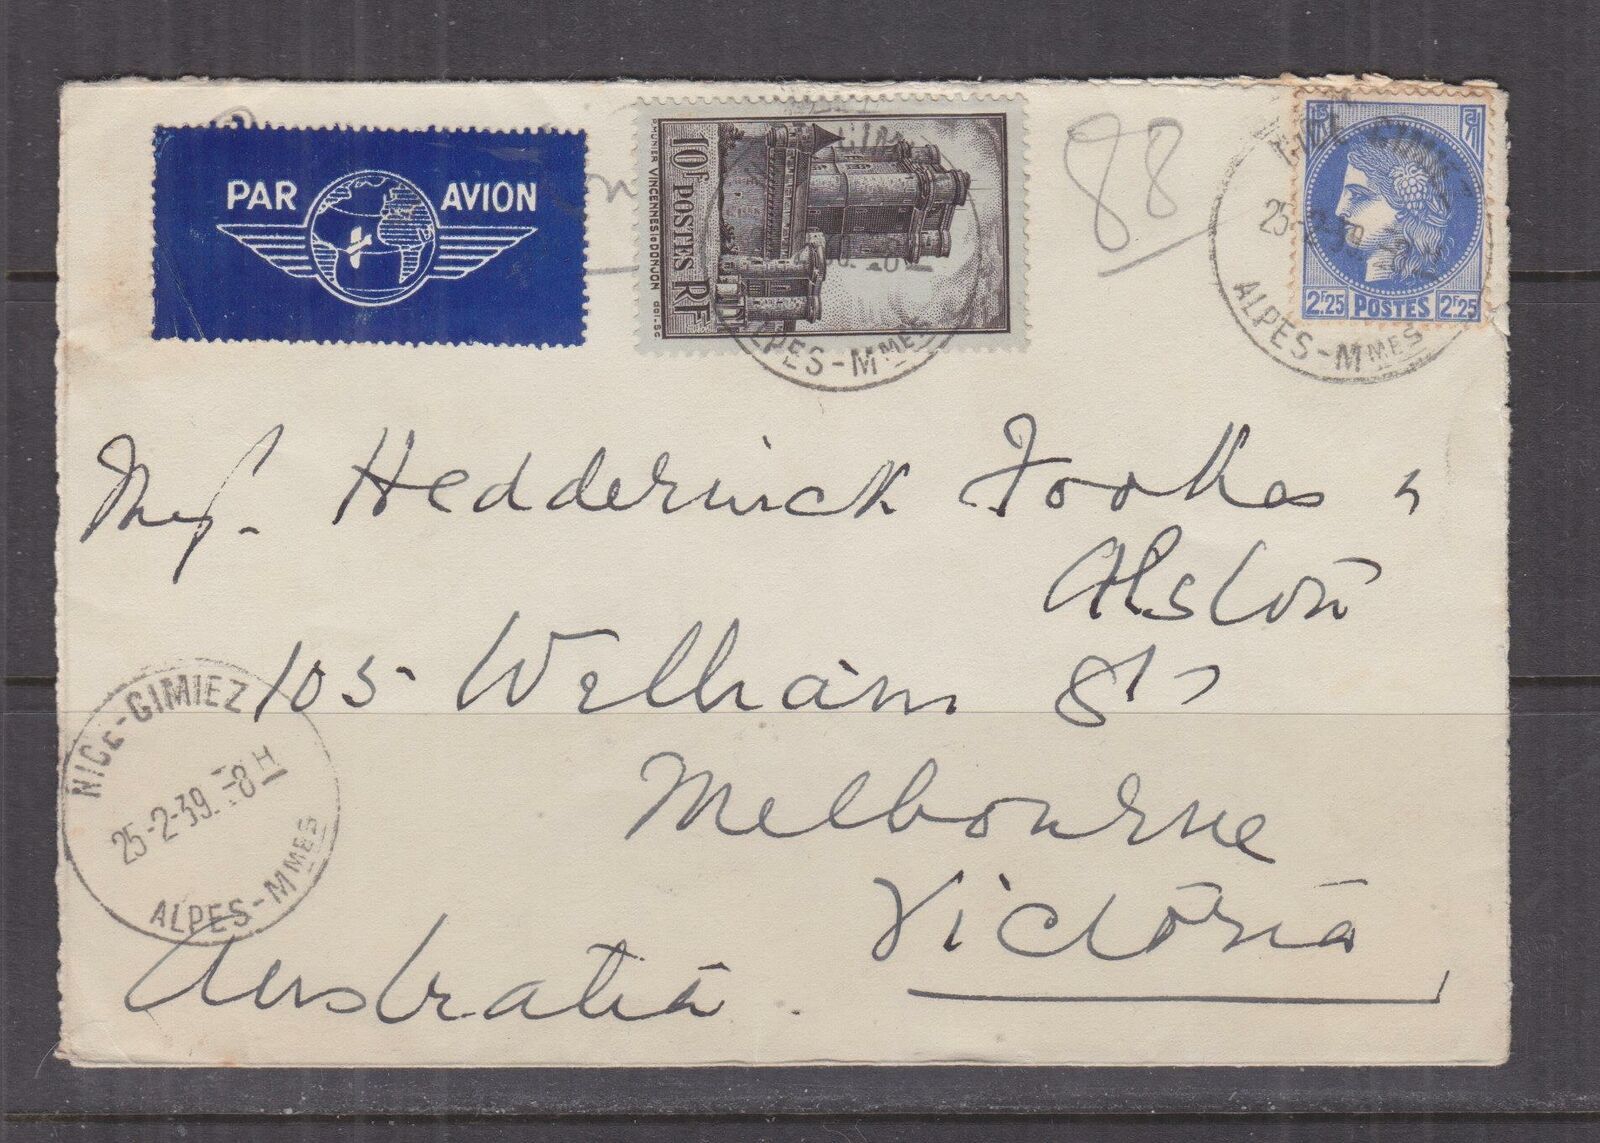 PAR AVION
10F POSTES RF
VINCENNES LE DONJON
88
25-2-39
ALPES-MMES
2F25 POSTES 2F25
ALPES-MMES
Hedderwick Fookes &
Alston
105 William St
Melbourne
Victoria
Australia.
NICE-CIMIEZ
25-2-39. -8H
ALPES-MMES